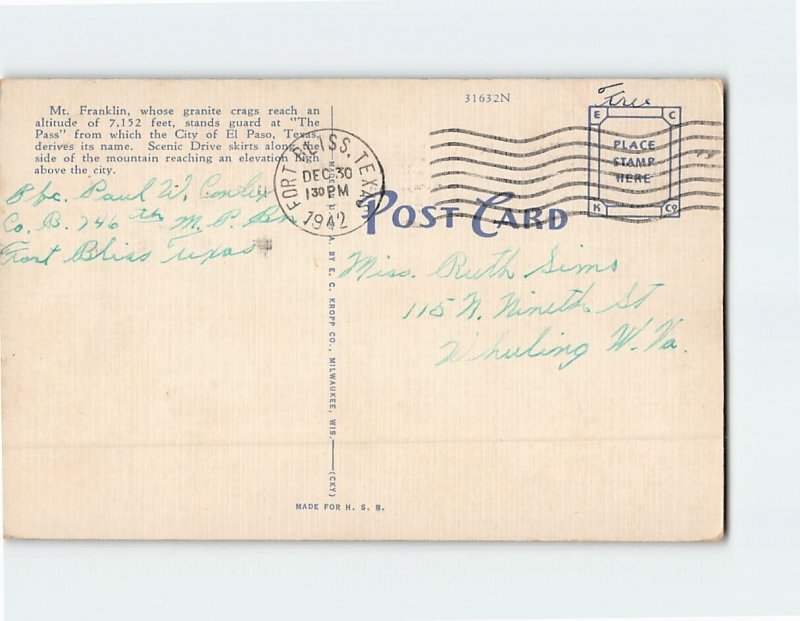 Mt. Franklin, whose granite crags reach an
altitude of 7,152 feet, stands guard at "The
Pass" from which the City of El Paso, Texas,
derives its name. Scenic Drive skirts along the
side of the mountain reaching an elevation high
above the city.
Pfc. Paul W. Conley
Co. B. 746th M. P. Bn
Fort Bliss Texas
FORT BLISS, TEXAS
DEC 30
1 30 PM
1942
31632N
Free
E C
PLACE
STAMP
HERE
K Co
POST CARD
Miss. Ruth Sims
115 N. Nineth St
Wheeling W. Va.
MADE IN U. S. A. BY E. C. KROPP CO., MILWAUKEE, WIS. (CKY)
MADE FOR H. S. B.